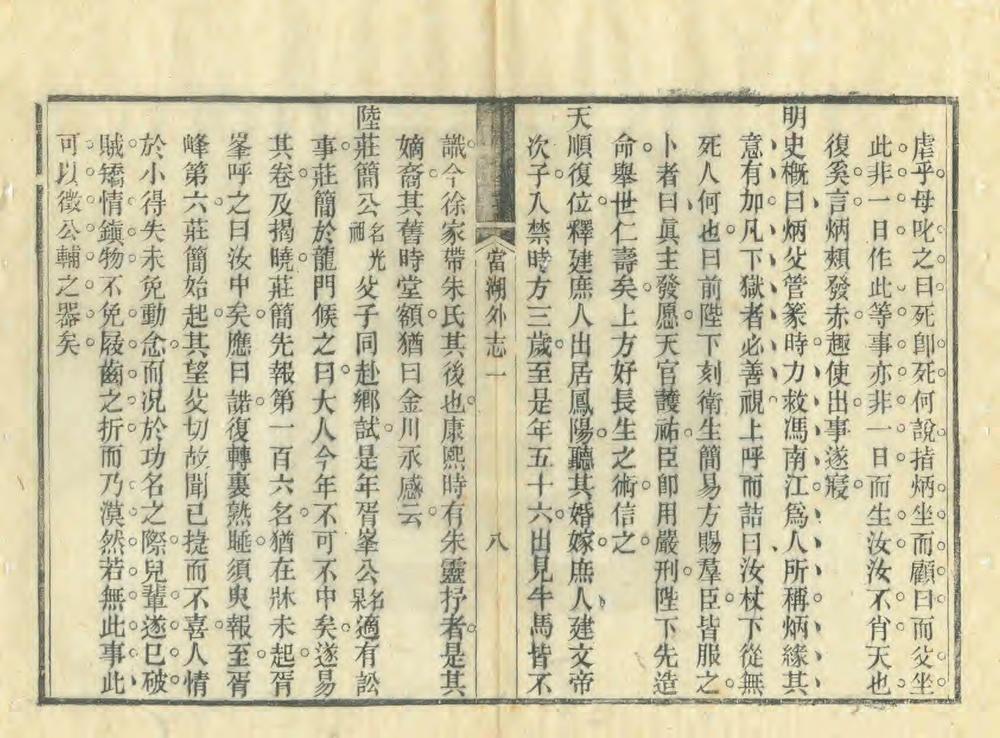 虐乎母叱之曰死卽死何說指炳坐而顧曰而父坐
此非一日作此等事亦非一日而生汝汝不肖天也
復奚言炳頰發赤趣使出事遂寢
明史槪曰炳父管篆時力救馮南江爲人所稱炳緣其
意有加凡下獄者必善視上呼而詰曰汝杖下從無
死人何也曰前陛下刻衛生簡易方賜羣臣皆服之
卜者曰眞主發愿天官護祐臣卽用嚴刑陛下先造
命舉世仁壽矣上方好長生之術信之
天順復位釋建庶人出居鳳陽聽其婚嫁庶人建文帝
次子入禁時方三歲至是年五十六出見牛馬皆不
當湖外志一 八
識今徐家帶朱氏其後也康熙時有朱靈抒者是其
嫡裔其舊時堂額猶曰金川永感云
陸莊簡公名光祖父子同赴鄉試是年胥峯公名杲適有訟
事莊簡於龍門候之曰大人今年不可不中矣遂易
其卷及揭曉莊簡先報第一百六名猶在牀未起胥
峯呼之曰汝中矣應曰諾復轉裏熟睡須臾報至胥
峰第六莊簡始起其望父切故聞已捷而不喜人情
於小得失未免動念而况於功名之際兒輩遂已破
賊矯情鎭物不免屐齒之折而乃漠然若無此事此
可以徵公輔之器矣